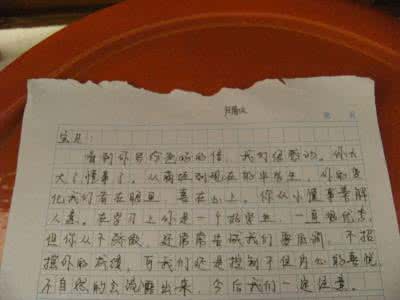 宝贝：
看到你写给爸妈的信，我们很感动。你长
大了，懂事了。从离校到现在的半年里，你的变
化我们看在眼里，喜在心上。你从小懂事善解
人意。在学习上你是一个
但你从不骄傲，还常常告诫我们要低调，不招
摇你的成绩，可我们还是控制不住内心的喜悦
不自然的去流露出来，今后我们一定注意。